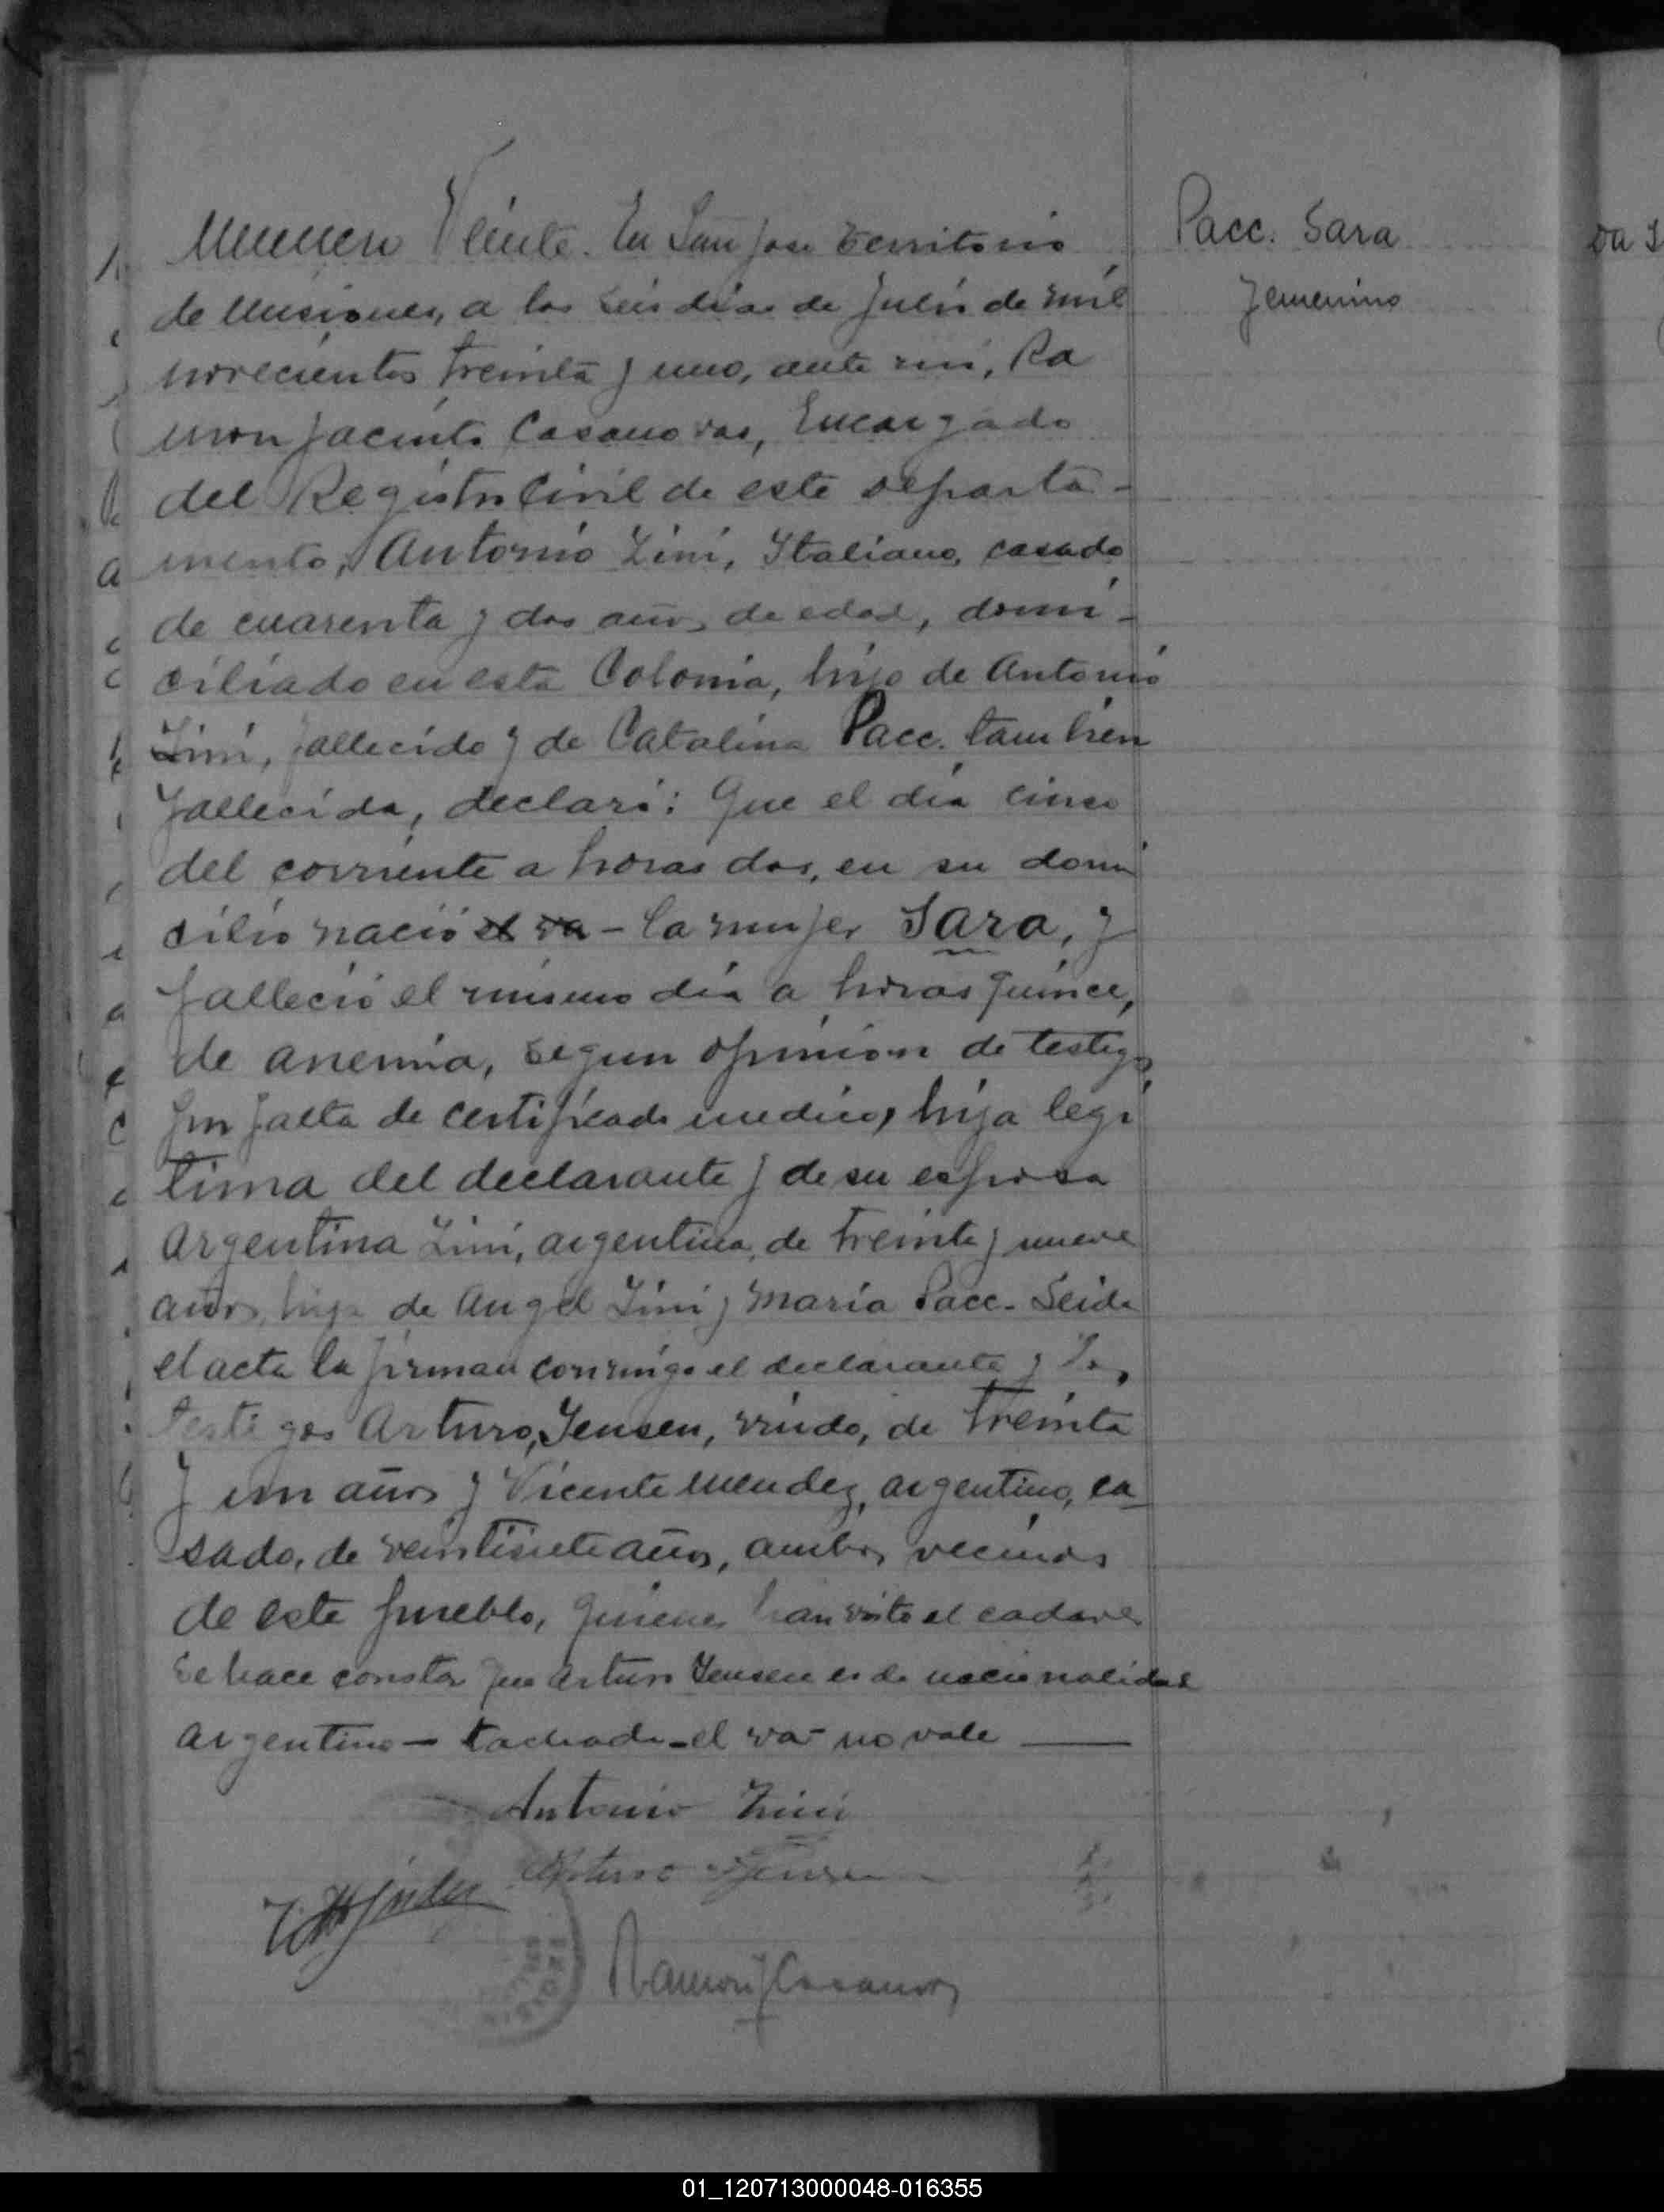 Pacc. Sara
femenino
Numero Veinte. En San Jose territorio
de Misiones, a los seis dias de Julio de mil
novecientos treinta y uno, ante mi, Ra
mon Jacinto Casanovas, Encargado
del Registro Civil de este departa-
mento, Antonio Zini, Italiano, casado
de cuarenta y dos años de edad, domi-
ciliado en esta Colonia, hijo de Antonio
Zini, fallecido y de Catalina Pacc. tambien
fallecida, declaró: Que el día cinco
del corriente a horas dos, en su domi
cilio nació el va - la mujer Sara, y
falleció el mismo día a horas quince,
de anemia, segun opinion de testigos
por falta de certificado medico, hija legi
tima del declarante y de su esposa
Argentina Zini, argentina, de treinta y nueve
años, hija de Angel Zini y Maria Pacc. Leida
el acta la firman conmigo el declarante y los
testigos Arturo, Jensen, viudo, de treinta
y un años y Vicente Mendez, argentino, ca-
sado, de veintisiete años, ambos vecinos
de este pueblo, quienes han visto el cadaver
Se hace constar que Arturo Jensen es de nacionalidad
argentino - tachado - el va - no vale
Antonio Zini
Arturo Jensen
Ramon J Casanovas
01_120713000048-016355